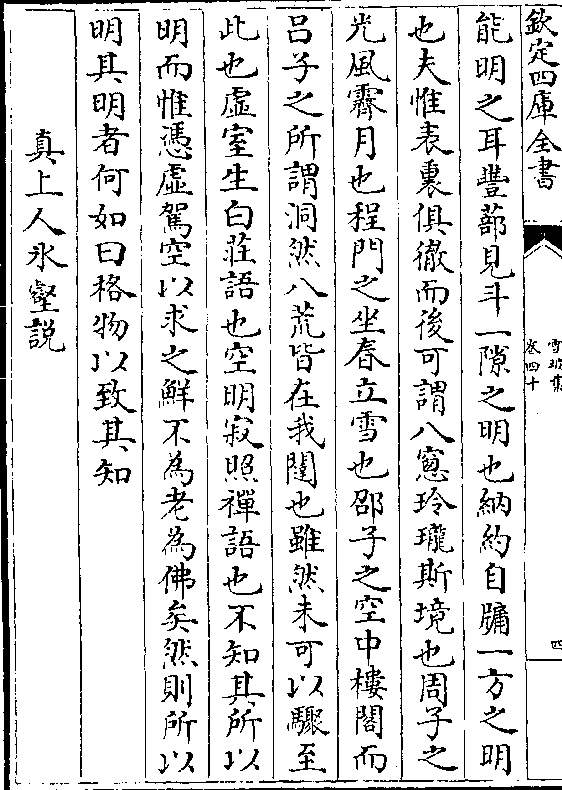 欽定四庫全書
雪坡集
卷四十
四
能明之耳豐蔀見斗一隙之明也納約自牖一方之明
也夫惟表裏俱徹而後可謂八窻玲瓏斯境也周子之
光風霽月也程門之坐春立雪也邵子之空中樓閣而
吕子之所謂洞然八荒皆在我闥也雖然未可以驟至
此也虛室生白莊語也空明寂照禪語也不知其所以
明而惟憑虛駕空以求之鮮不為老為佛矣然則所以
明其明者何如曰格物以致其知
真上人氷壑説